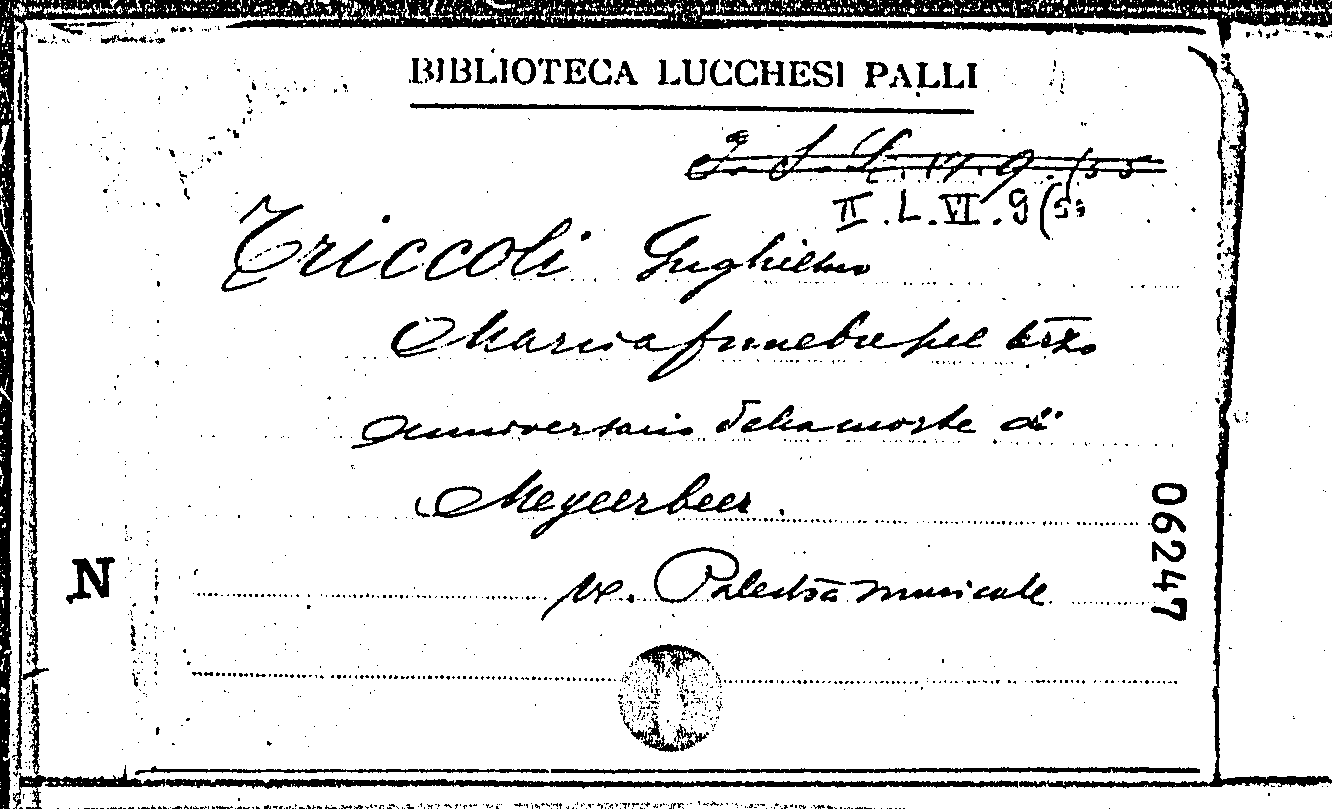 BIBLIOTECA LUCCHESI PALLI
II.L.VI.9(5
Triccoli Guglielmo
Marcia funebre pel terzo
anniversario della morte di
Meyeerbeer.
N
06247
Ve. Palestra musicale